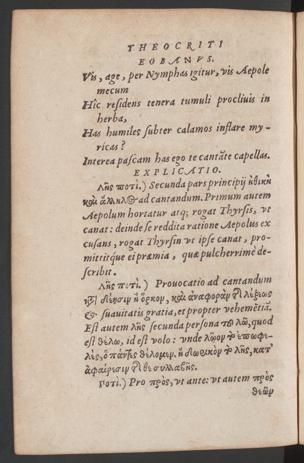 THEOCRITI
EOBANVS.
Vis, age, per Nymphas igitur, vis Aepole
mecum
Hîc residens tenera tumuli procliuis in
herba,
Has humiles subter calamos inflare my-
ricas?
Interea pascam has ego te cantãte capellas.
EXPLICATIO.
Λῆς ποτί.) Secunda pars principij ἠθικὴ
καὶ ad cantandum. Primum autem
Aepolum hortatur atq; rogat Thyrsis, vt
canat: deinde se reddita ratione Aepolus ex
cusans, rogat Thyrsin vt ipse canat, pro-
mittitque ei præmia, quæ pulcherrimè de-
scribit.
Λῆς ποτί.) Prouocatio ad cantandum
δέησιν ἢ ὅρκον, καὶ ἀναφορὰν λέξεως
& suauitatis gratia, et propter vehemẽtiã.
Est autem λῆς secunda persona τοῦ λῶ, quod
est θέλω, id est volo: vnde
ὃ πάντες θέλομεν. ἢ δωρικὸν τὸ λῆς, κατ'
ἀφαίρεσιν συλλαβῆς.
Ποτί.) Pro πρὸς, vt ante: vt autem πρὸς
θεῶν